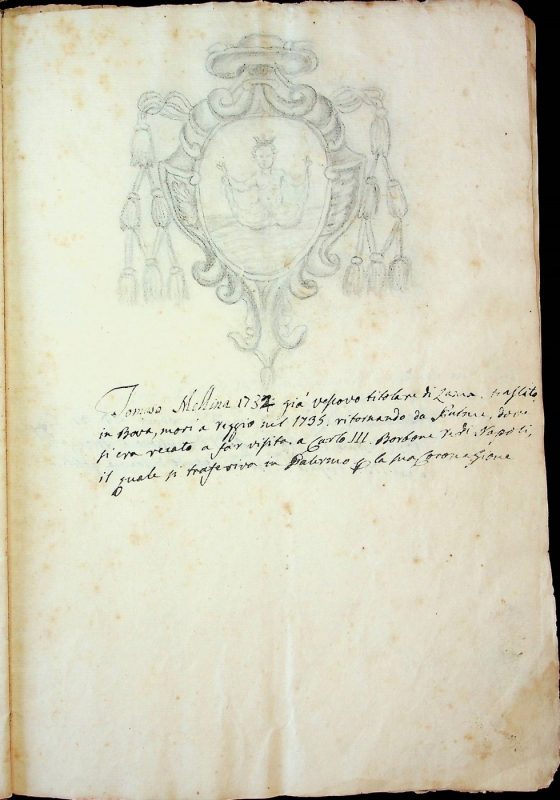 Tomaso Mollina 1732 già vescovo titolare di Zama. traslato
in Bova, morì a reggio nel 1735. ritornando da dove
si era recato a far visita. a Carlo III. Borbone re di Napoli,
il quale si trasferiva in Palermo p la sua Coronazione